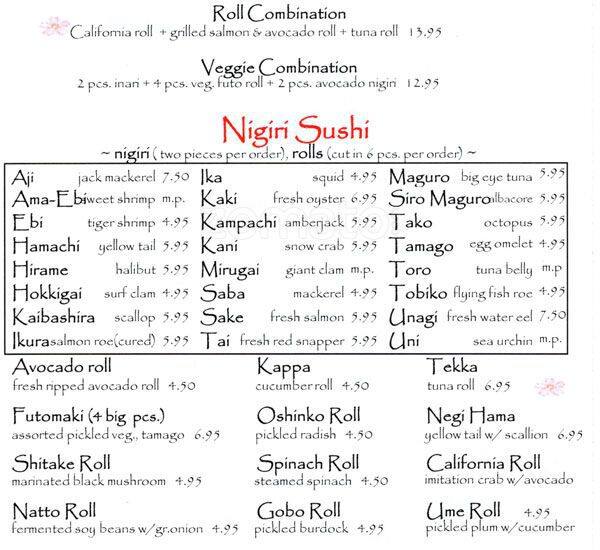 Roll Combination
California roll + grilled salmon & avocado roll + tuna roll 13.95
Veggie Combination
2 pcs. inari + 4 pcs. veg. futo roll + 2 pcs. avocado nigiri 12.95
Nigiri Sushi
~ nigiri ( two pieces per order), rolls (cut in 6 pcs. per order) ~
Aji jack mackerel 7.50 Ika squid 4.95 Maguro big eye tuna 5.95
Ama-Ebi sweet shrimp m.p. Kaki fresh oyster 6.95 Siro Maguro albacore 5.95
Ebi tiger shrimp 4.95 Kampachi amberjack 5.95 Tako octopus 5.95
Hamachi yellow tail 5.95 Kani snow crab 5.95 Tamago egg omelet 4.95
Hirame halibut 5.95 Mirugai giant clam m.p. Toro tuna belly m.p
Hokkigai surf clam 4.95 Saba mackerel 4.95 Tobiko flying fish roe 4.95
Kaibashira scallop 5.95 Sake fresh salmon 5.95 Unagi fresh water eel 7.50
Ikura salmon roe(cured) 5.95 Tai fresh red snapper 5.95 Uni sea urchin m.p.
Avocado roll Kappa Tekka
fresh ripped avocado roll 4.50 cucumber roll 4.50 tuna roll 6.95
Futomaki (4 big pcs.) Oshinko Roll Negi Hama
assorted pickled veg., tamago 6.95 pickled radish 4.50 yellow tail w/ scallion 6.95
Shitake Roll Spinach Roll California Roll
marinated black mushroom 4.95 steamed spinach 4.50 imitation crab w/avocado
Natto Roll Gobo Roll Ume Roll 4.95
fermented soy beans w/gr.onion 4.95 pickled burdock 4.95 pickled plum w/cucumber